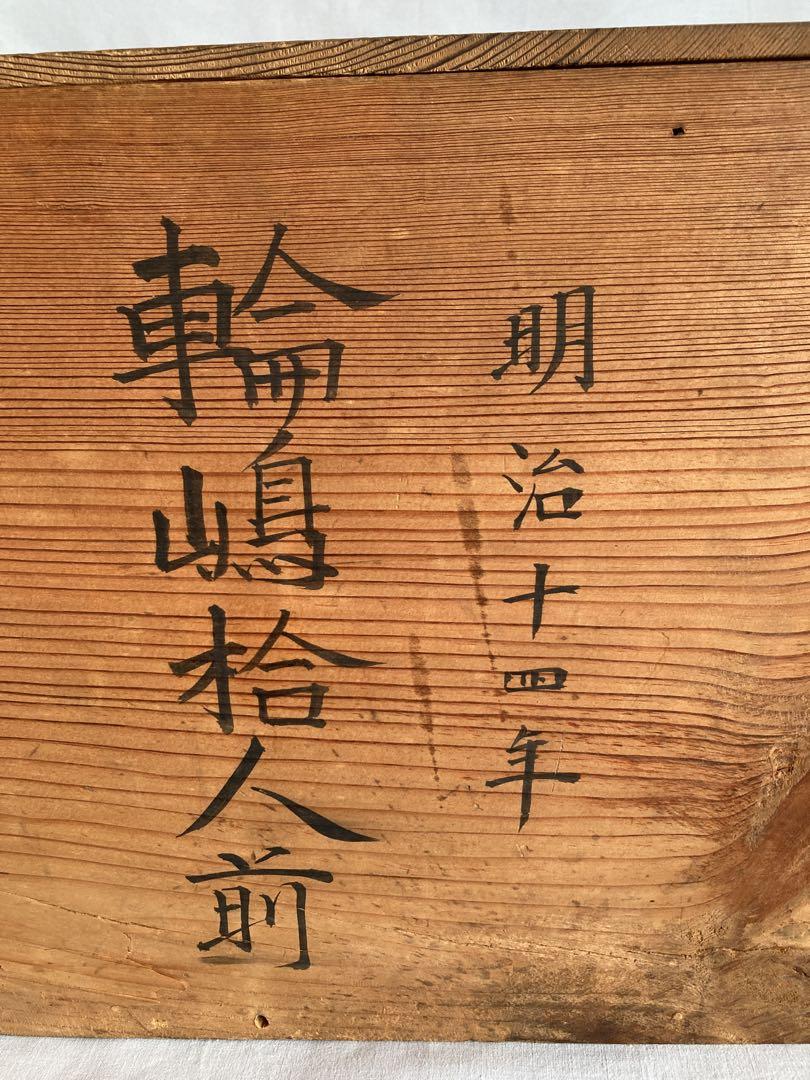 明治十四年
輪嶋拾人前